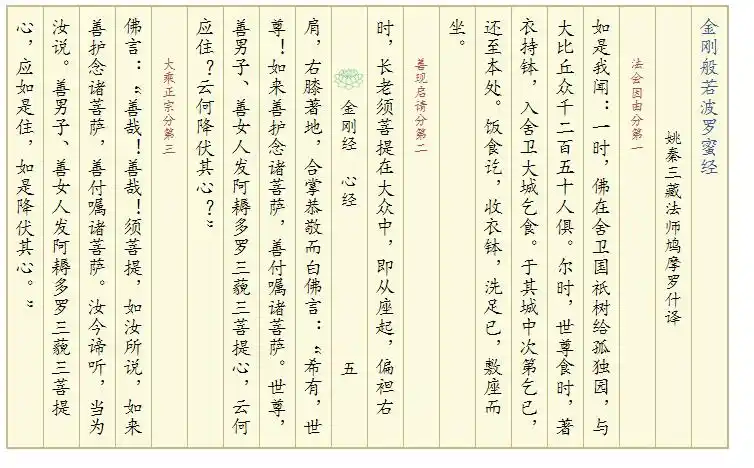 金刚般若波罗蜜经
姚秦三藏法师鸠摩罗什译
法会因由分第一
如是我闻：一时，佛在舍卫国祇树给孤独园，与
大比丘众千二百五十人俱。尔时，世尊食时，著
衣持钵，入舍卫大城乞食。于其城中次第乞已，
还至本处。饭食讫，收衣钵，洗足已，敷座而
坐。
善现启请分第二
时，长老须菩提在大众中，即从座起，偏袒右
金刚经 心经 五
肩，右膝著地，合掌恭敬而白佛言：“希有，世
尊！如来善护念诸菩萨，善付嘱诸菩萨。世尊，
善男子、善女人发阿耨多罗三藐三菩提心，云何
应住？云何降伏其心？”
大乘正宗分第三
佛言：“善哉！善哉！须菩提，如汝所说，如来
善护念诸菩萨，善付嘱诸菩萨。汝今谛听，当为
汝说。善男子、善女人发阿耨多罗三藐三菩提
心，应如是住，如是降伏其心。”